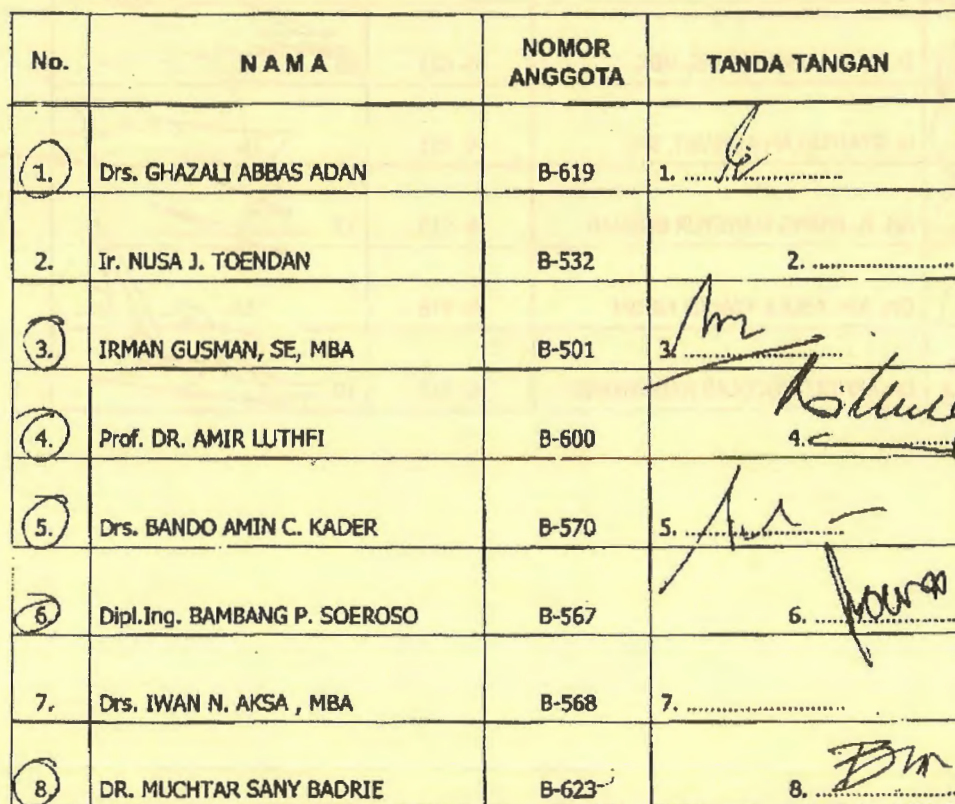 No. NAMA NOMOR ANGGOTA TANDA TANGAN
1. Drs. GHAZALI ABBAS ADAN B-619 1. ....................
2. Ir. NUSA J. TOENDAN B-532 2. ....................
3. IRMAN GUSMAN, SE, MBA B-501 3. ....................
4. Prof. DR. AMIR LUTHFI B-600 4. ....................
5. Drs. BANDO AMIN C. KADER B-570 5. ....................
6. Dipl.Ing. BAMBANG P. SOEROSO B-567 6. ....................
7. Drs. IWAN N. AKSA , MBA B-568 7. ....................
8. DR. MUCHTAR SANY BADRIE B-623 8. ....................